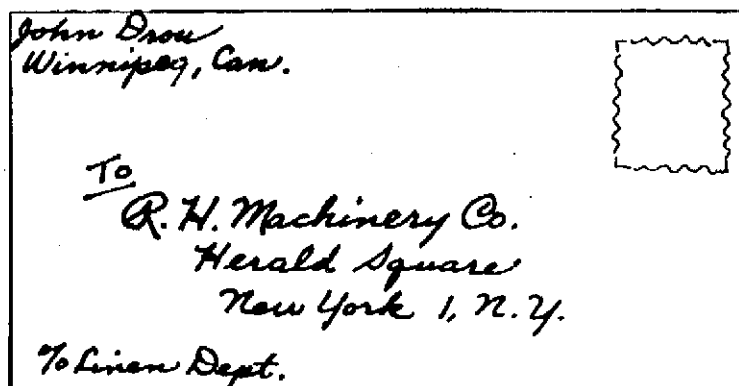 John Drou
Winnipeg, Can.
To
R. H. Machinery Co.
Herald Square
New York 1, N. Y.
℅ Linen Dept.